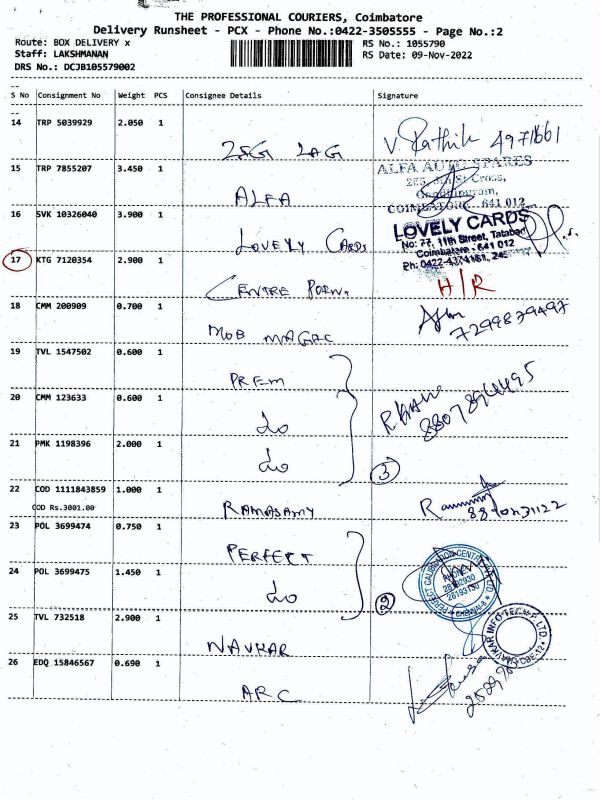 THE PROFESSIONAL COURIERS, Coimbatore
Delivery Runsheet - PCX - Phone No.:0422-3505555 - Page No.:2
Route: BOX DELIVERY x
RS No.: 1055790
Staff: LAKSHMANAN
RS Date: 09-Nov-2022
DRS No.: DCJB105579002
S No Consignment No Weight PCS Consignee Details Signature
14 TRP 5039929 2.050 1
V. Rathik 4971661
15 TRP 7855207 3.450 1 ALFA
ALFA AUTO SPARES
Cross,
Gandhipuram,
COIMBATORE - 641 012
16 SVK 10326040 3.900 1 LOVELY CARDS
LOVELY CARDS
No: 77, 11th Street, Tatabad
Coimbatore - 641 012
Ph: 0422-4374161, 245
17 KTG 7120354 2.900 1 CENTRE POINT
H/R
18 CMM 200909 0.700 1 MOB MAGIC
7299879497
19 TVL 1547502 0.600 1 PREM
20 CMM 123633 0.600 1 do
21 PMK 1198396 2.000 1 do
3
22 COD 1111843859 1.000 1 RAMASAMY
COD Rs.3001.00
23 POL 3699474 0.750 1 PERFECT
24 POL 3699475 1.450 1 do
2
PERFECT CALIBRATION CENTRE
25 TVL 732518 2.900 1 NAVKAR
NAVKAR INFO
26 EDQ 15846567 0.690 1 ARC